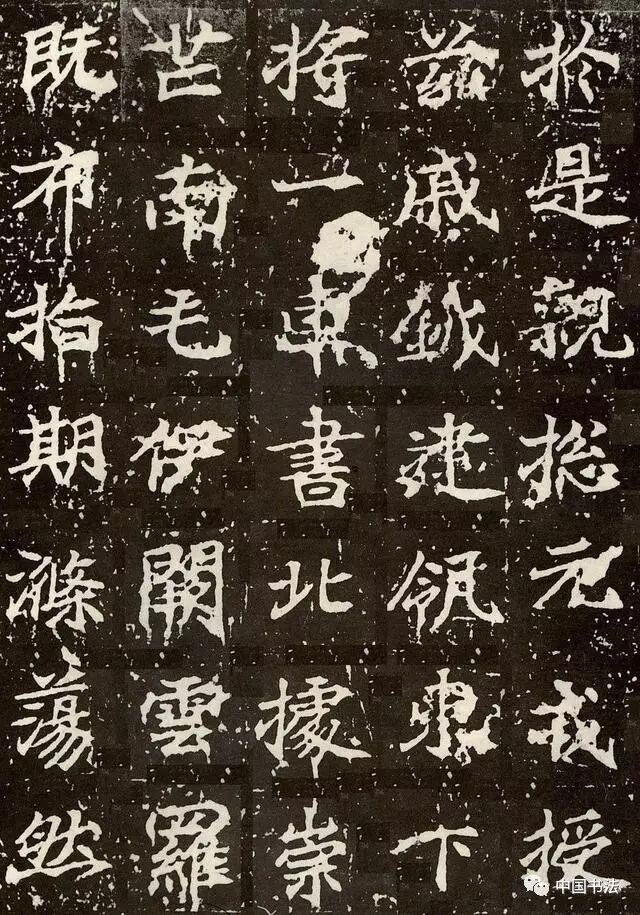 於是親捴元戎授
茲戚鉞建瓴東下
將一車書北據崇
芒南屯伊闕雲羅
既布指期滌蕩然
中国书法